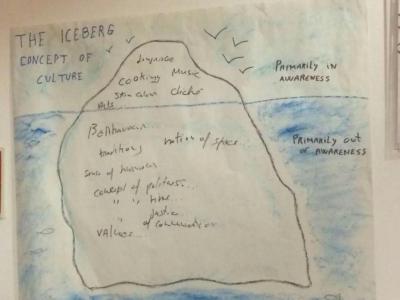 THE ICEBERG
CONCEPT OF
CULTURE
language
Cooking Music
Skin colour Cliché
PRIMARILY IN
AWARENESS
Behaviour...
traditions notion of space...
sense of humour
concept of politeness...
" " time...
" justice
" of communication
values...
PRIMARILY OUT
OF AWARENESS